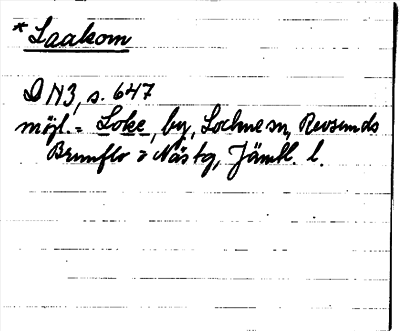 * Laakom
DN3, s. 647
möjl. = Loke, by, Lockne sn, Revsunds
Brunflo o Näs tg, Jämtl. l.